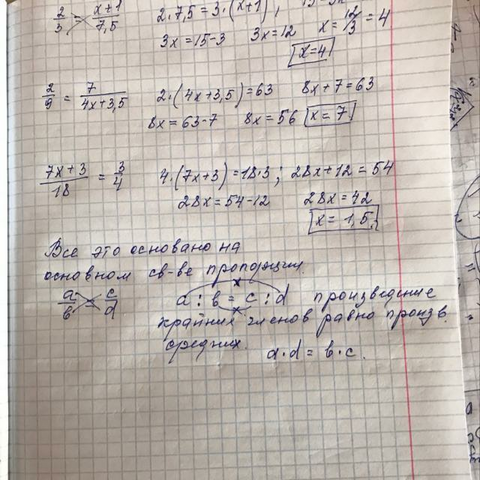 2/3 = (x+1)/7,5 2·7,5=3·(x+1);
3x=15-3 3x=12 x=12/3=4
x=4
2/9 = 7/(4x+3,5) 2·(4x+3,5)=63 8x+7=63
8x=63-7 8x=56 x=7
(7x+3)/18 = 3/4 4·(7x+3)=18·3; 28x+12=54
28x=54-12 28x=42
x=1,5
Все это основано на
основном св-ве пропорции.
a/b = c/d a:b=c:d произведение
крайних членов равно произв.
средних. a·d=b·c.